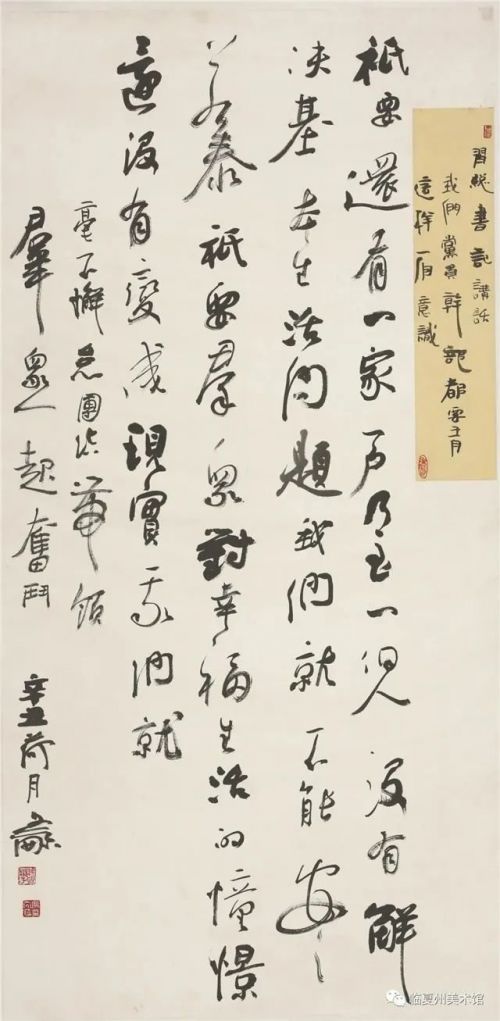 習總書記講話
我們黨員幹部都要有
這樣一個意識
祇要還有一家户乃至一個人沒有解
決基本生活问題我們就不能安之
若泰祇要羣眾對幸福生活的憧憬
還沒有變成現實我們就
毫不懈怠團結帶領
羣眾一起奮鬥
辛丑荷月
临夏州美术馆